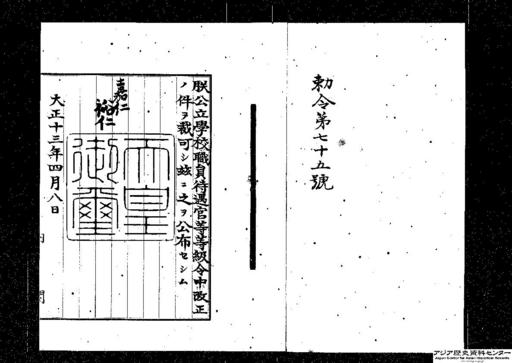 勅令第七十五號
朕公立學校職員待遇官等等級令中改正
ノ件ヲ裁可シ玆ニ之ヲ公布セシム
嘉仁
裕仁
天皇
御璽
大正十三年四月八日
内閣
アジア歴史資料センター
Japan Center for Asian Historical Records